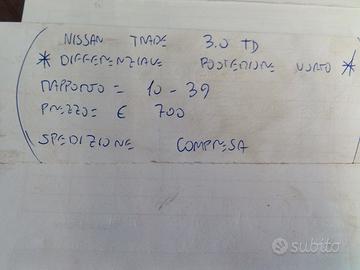 NISSAN TRADE 3.0 TD
* DIFFERENZIALE POSTERIORE NUOTO *
RAPPORTO = 10 - 39
PREZZO = € 700
SPEDIZIONE COMPRESA
subito